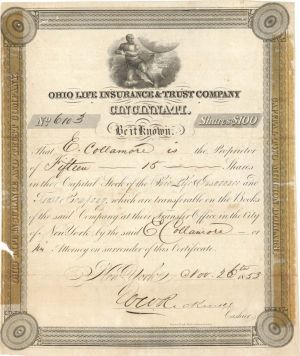 OHIO LIFE INSURANCE & TRUST COMPANY
CINCINNATI.
No 6103 Shares $100
Be it Known.
That E. Collamore is the Proprietor
of Fifteen 15 Shares
in the Capital Stock of the Ohio Life Insurance and
Trust Company, which are transferable on the Books
of the said Company at their Transfer Office in the City
of New York, by the said E Collamore or
his Attorney on surrender of this Certificate.
New York, Nov. 26th 1853
Cashier.
OHIO LIFE INSURANCE AND TRUST COMPANY